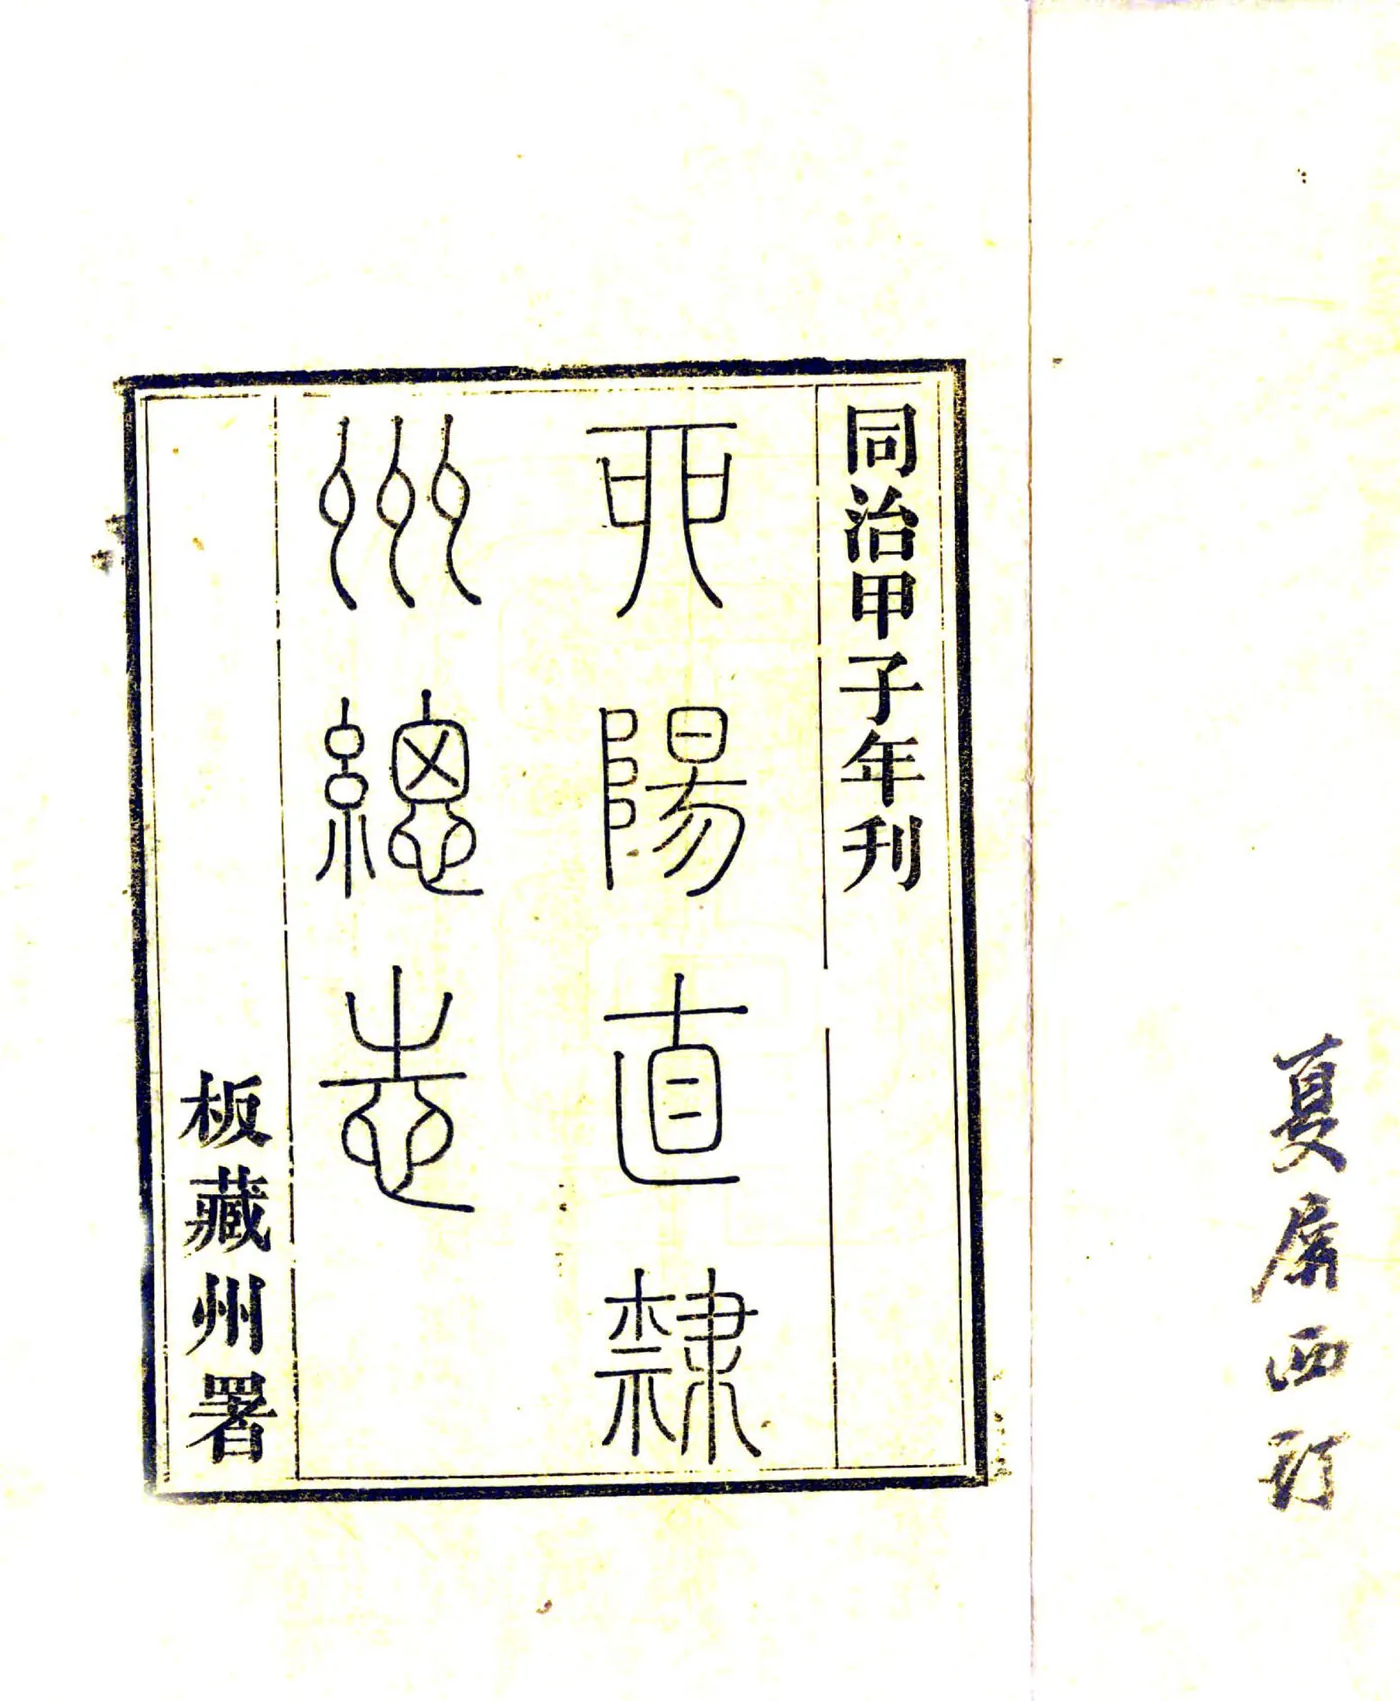 夏屏西訂
同治甲子年刊
酉陽直隸
州總志
板藏州署